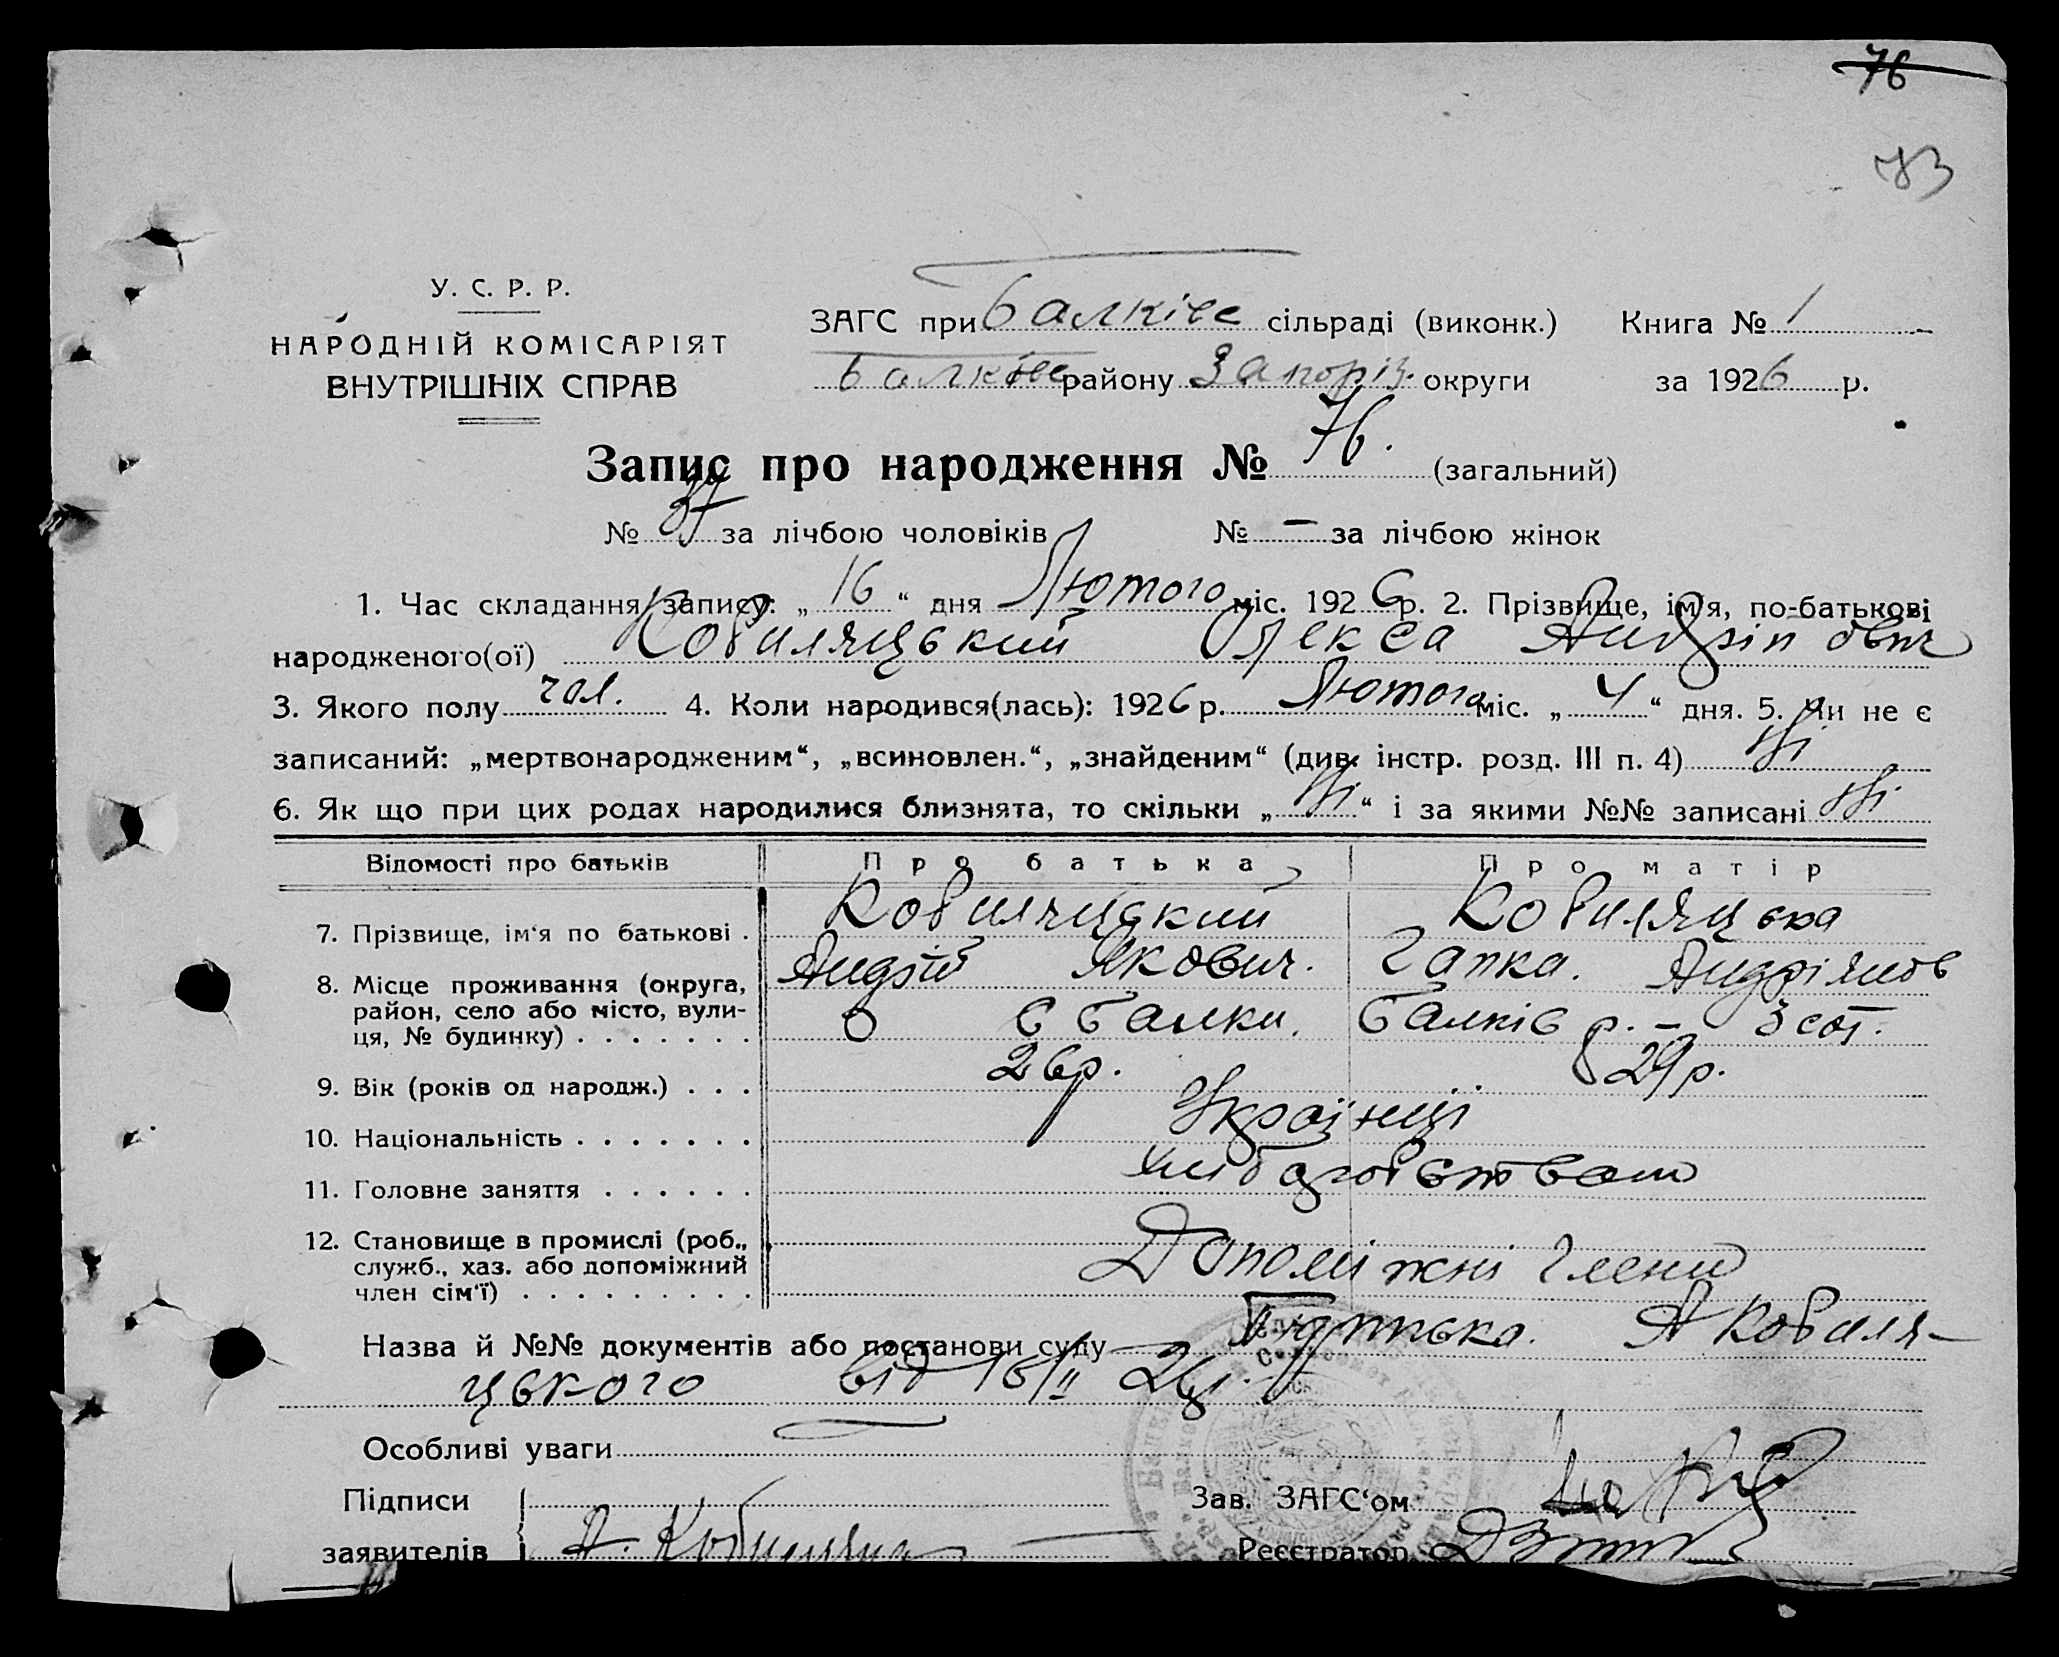 76
73
У. С. Р. Р.
НАРОДНІЙ КОМІСАРІЯТ
ВНУТРІШНІХ СПРАВ
ЗАГС при Балківс сільраді (виконк.) Книга № 1
Балківс району Запоріз. округи за 1926 р.
Запис про народження № 76. (загальний)
№ 37 за лічбою чоловіків № – за лічбою жінок
1. Час складання запису: „ 16 “ дня Лютого міс. 1926 р. 2. Прізвище, ім'я, по-батькові
народженого(ої) Кобиляцький Олекса Андрієвич
3. Якого полу чол. 4. Коли народився(лась): 1926 р. Лютого міс. „ 4 “ дня. 5. Чи не є
записаний: „мертвонародженим“, „всиновлен.“, „знайденим“ (див. інстр. розд. III п. 4) Ні
6. Як що при цих родах народилися близнята, то скільки „ Ні “ і за якими №№ записані Ні
Відомості про батьків Про батька Про матір
7. Прізвище, ім'я по батькові . Кобиляцький Кобиляцька
Андрій Якович. Гапка.
8. Місце проживання (округа,
район, село або місто, вули-
ця, № будинку) . . . . . . . с Балки. Балків р. – 3 сот.
9. Вік (років од народж.) . . . 26р. 29р.
10. Національність . . . . . . . Українці
11. Головне заняття . . . . . . хліборобством
12. Становище в промислі (роб.,
служб., хаз. або допоміжний
член сім'ї) . . . . . . . . . . Допоміжні члени
Назва й №№ документів або постанови суду А Кобиля-
цького від 16/II 26р.
Особливі уваги
Підписи Зав. ЗАГС'ом
заявителів А. Реєстратор